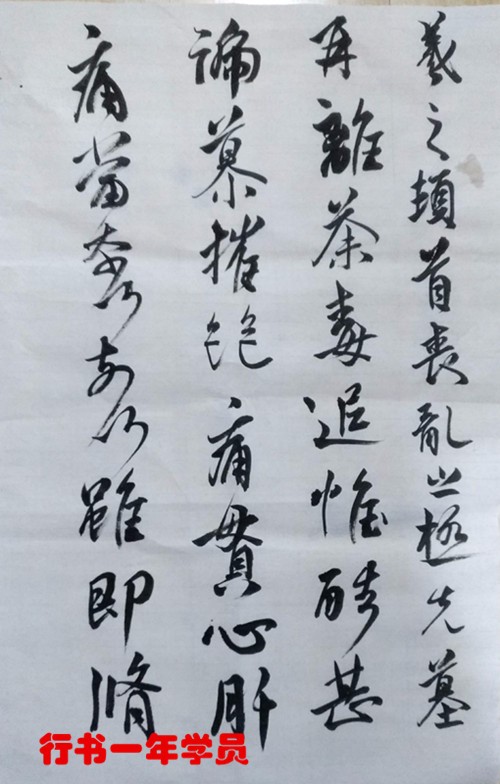 羲之頓首喪亂之極先墓
再離荼毒追惟酷甚
號慕摧絕痛貫心肝
痛當奈何奈何雖即脩
行书一年学员